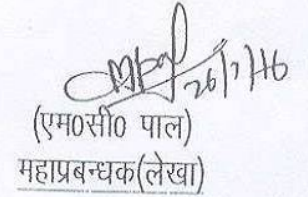 26/7/16
(एम0सी0 पाल)
महाप्रबन्धक(लेखा)